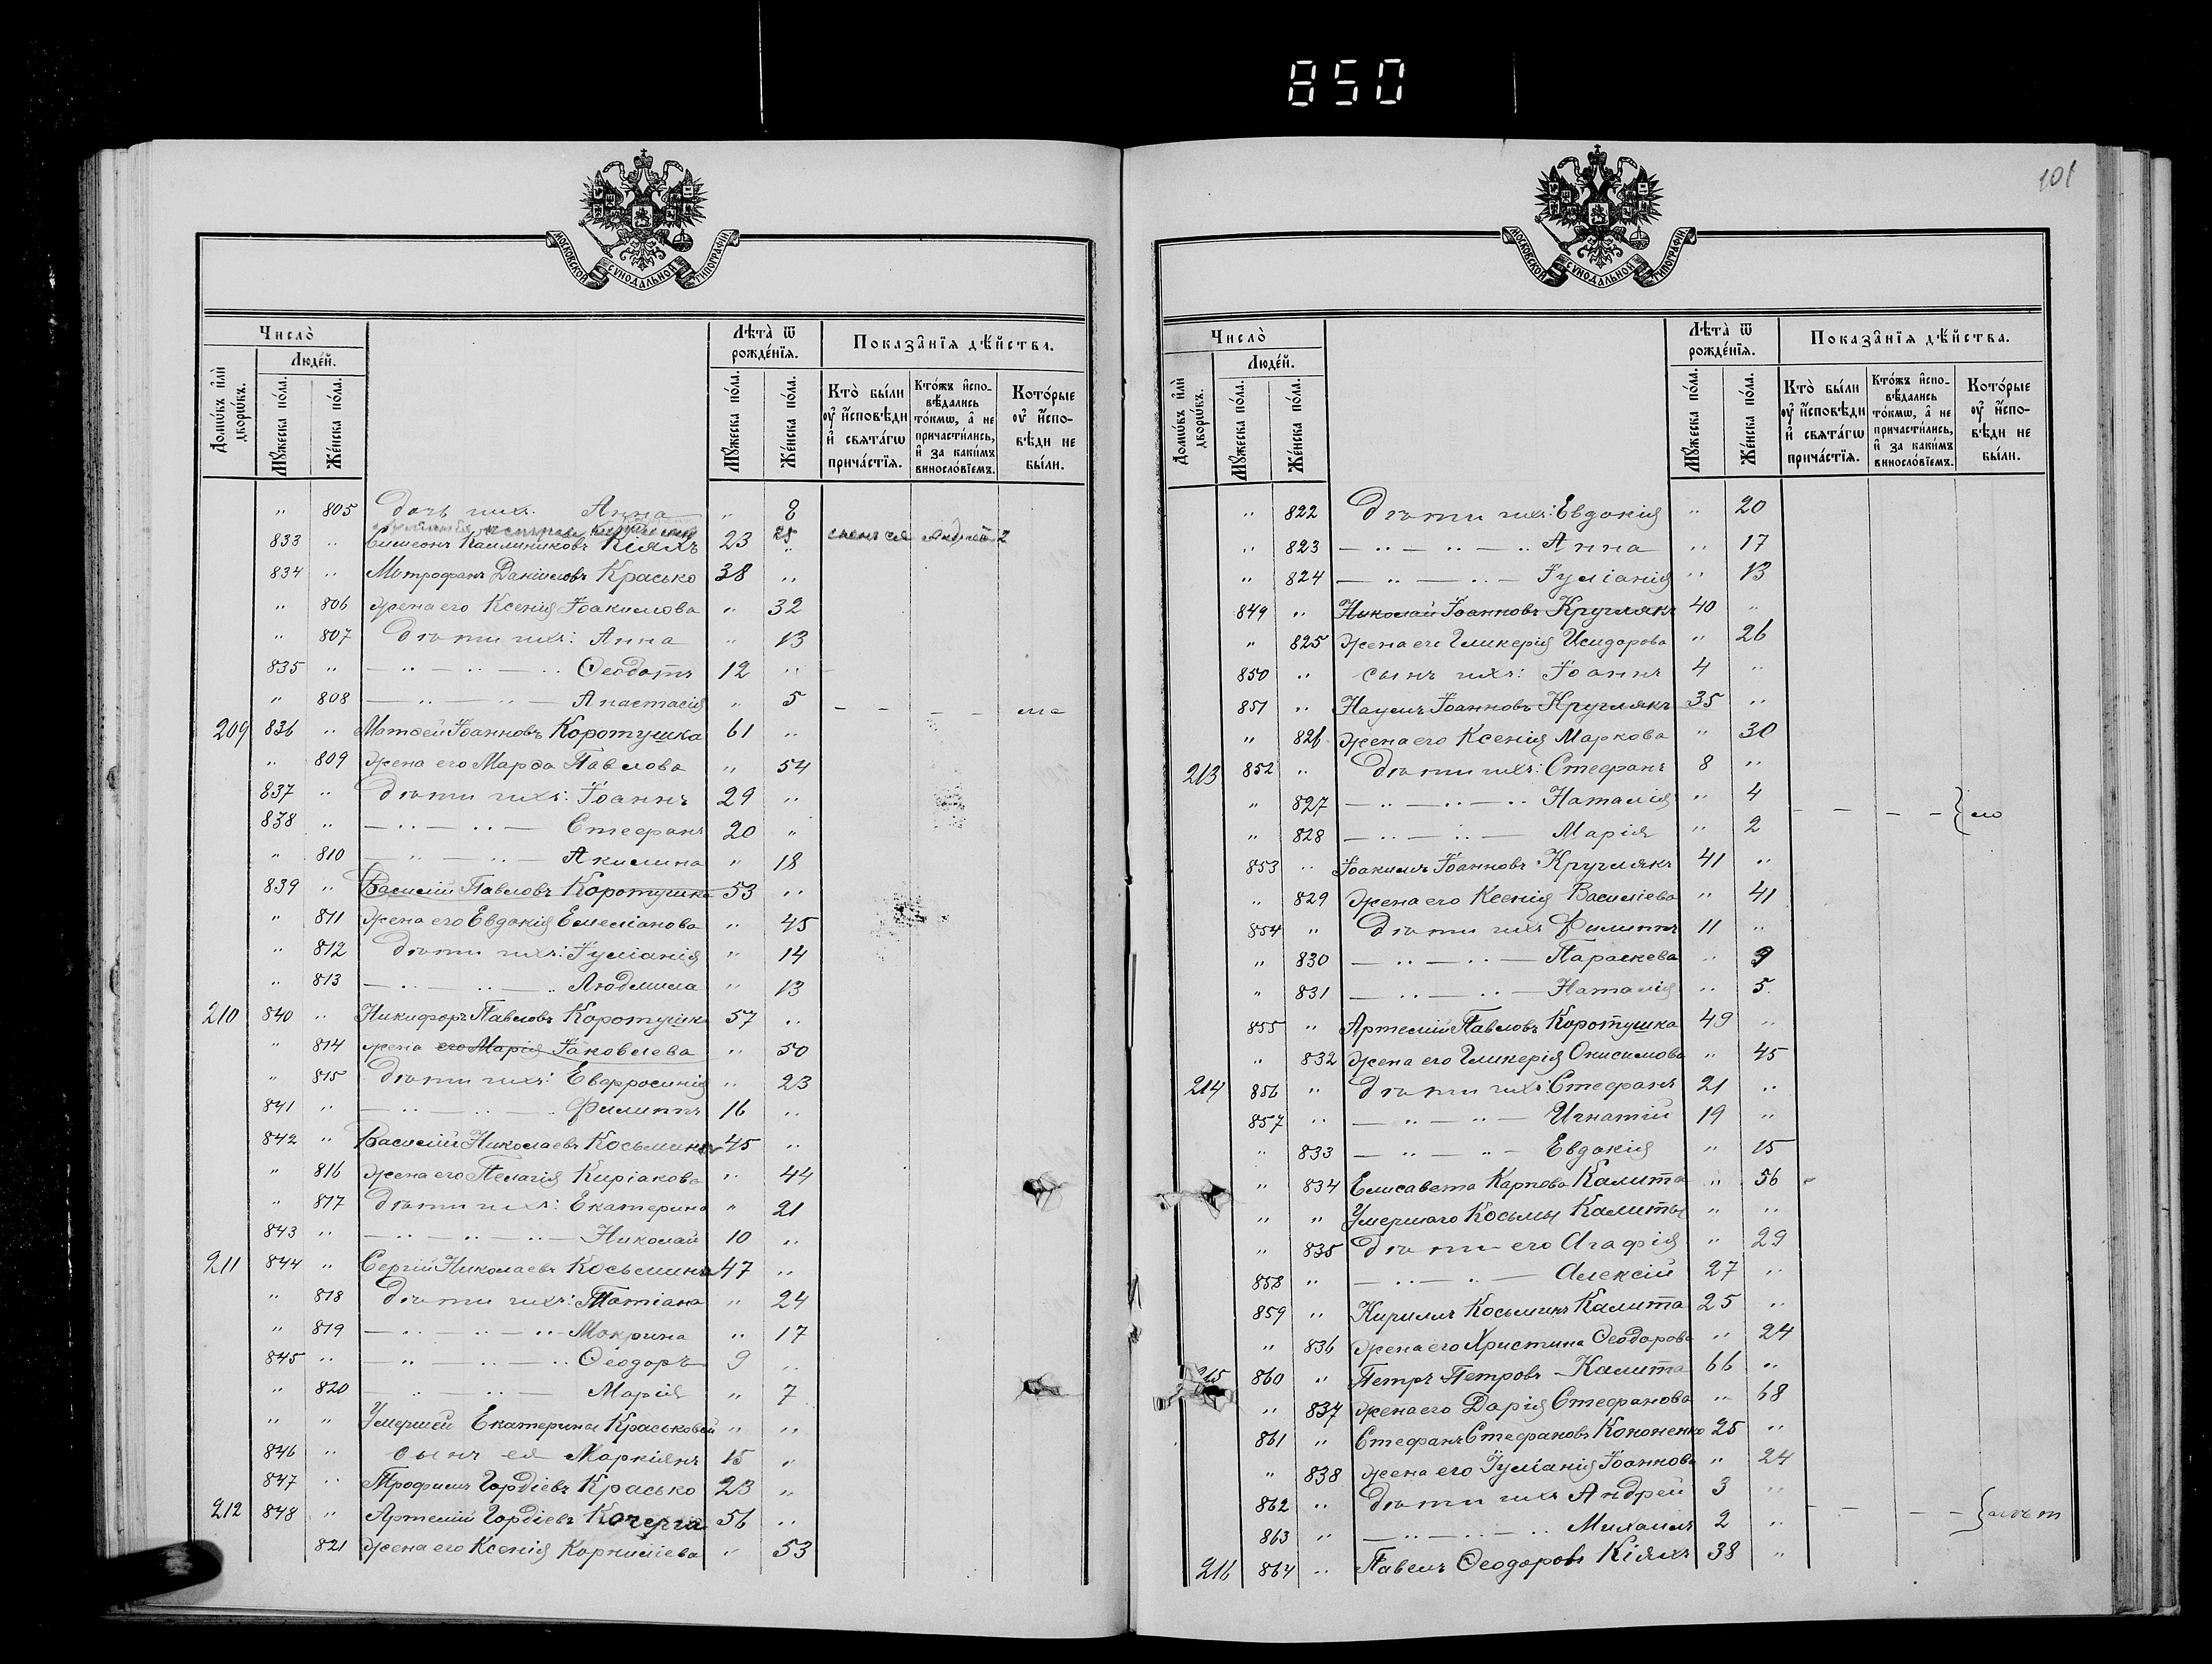 850
101
МОСКОВСКОЙ СУНОДАЛЬНОЙ ТИПОГРАФІИ
Число̀
Людей.
Домѡвъ и҆лѝ дворѡвъ.
Мꙋжеска по́ла.
Же́нска по́ла.
Лѣта̀ ѿ рожде́нїѧ.
Мꙋжеска по́ла.
Же́нска по́ла.
Показа̑нїѧ дѣ́йства.
Кто̀ бы́ли ᲂу҆ и҆́сповѣди и҆ свѧта́гѡ прича́стїѧ.
Кто́жъ и҆спо­вѣ́дались то́кмѡ, а҆ не причасти́лись, и҆ за каки́мъ виносло́вїемъ.
Кото́рые ᲂу҆ и҆́спо­вѣди не бы́ли.
" 805 Дочь ихъ: Анна " 8
833 " Симеонъ Каллиниковъ Кіяхъ 23 "
834 " Митрофанъ Даніиловъ Красько 38 "
" 806 Жена его Ксенія Іоакимова " 32
" 807 Дѣти ихъ: Анна " 13
835 " — " — " — " Ѳеодотъ 12 "
" 808 — " — " — Анастасія " 5
209 836 " Матѳей Іоанновъ Коротушка 61 "
" 809 Жена его Марѳа Павлова " 54
837 " Дѣти ихъ: Іоаннъ 29 "
838 " — " — " — Стефанъ 20 "
" 810 — " — " — Акилина " 18
839 " Василій Павловъ Коротушка 53 "
" 811 Жена его Евдокія Емеліанова " 45
" 812 Дѣти ихъ: Іуліанія " 14
" 813 — " — " — " Людмила " 13
210 840 " Никифоръ Павловъ Коротушка 57 "
" 814 Жена его Марія Іаковлева " 50
" 815 Дѣти ихъ: Евфросинія " 23
841 " — " — " — " Филиппъ 16 "
842 " Василій Николаевъ Косьминка 45 "
" 816 Жена его Пелагія Киріакова " 44
" 817 Дѣти ихъ: Екатерина " 21
843 " — " — " — " — Николай 10 "
211 844 " Сергій Николаевъ Косьминка 47 "
" 818 Дѣти ихъ: Татіана " 24
" 819 — " — " — " Мокрина " 17
845 " — " — " — " Ѳеодоръ 9 "
" 820 — " — " — Марія " 7
" " Умершей Екатерины Краськовой " "
846 " сынъ ея Маркіянъ 15 "
847 " Трофимъ Гордіевъ Красько 23 "
212 848 " Артемій Гордіевъ Кочерга 56 "
821 Жена его Ксенія Корниліева " 53
Число̀
Людей.
Домѡвъ и҆лѝ дворѡвъ.
Мꙋжеска по́ла.
Же́нска по́ла.
Лѣта̀ ѿ рожде́нїѧ.
Мꙋжеска по́ла.
Же́нска по́ла.
Показа̑нїѧ дѣ́йства.
Кто̀ бы́ли ᲂу҆ и҆́сповѣди и҆ свѧта́гѡ прича́стїѧ.
Кто́жъ и҆спо­вѣ́дались то́кмѡ, а҆ не причасти́лись, и҆ за каки́мъ виносло́вїемъ.
Кото́рые ᲂу҆ и҆́спо­вѣди не бы́ли.
МОСКОВСКОЙ СУНОДАЛЬНОЙ ТИПОГРАФІИ
" 822 Дѣти ихъ: Евдокія " 20
" 823 — " — " — " Анна " 17
" 824 — " — " — Іуліанія " 13
849 " Николай Іоанновъ Круглякъ 40 "
" 825 Жена его Гликерія Исидорова " 26
850 " сынъ ихъ: Іоаннъ 4 "
851 " Наумъ Іоанновъ Круглякъ 35 "
" 826 Жена его Ксенія Маркова " 30
213 852 " Дѣти ихъ: Стефанъ 8 "
" 827 — " — " — " Наталія " 4
" 828 — " — " — Марія " 2
853 " Іоакимъ Іоанновъ Круглякъ 41 "
" 829 Жена его Ксенія Василіева " 41
854 " Дѣти ихъ Филиппъ 11 "
" 830 — " — " — Параскева " 9
" 831 — " — " — Наталія " 5
855 " Артемій Павловъ Коротушка 49 "
" 832 Жена его Гликерія Онисимова " 45
214 856 " Дѣти ихъ: Стефанъ 21 "
857 " — " — " — Игнатій 19 "
" 833 — " — " — Евдокія " 15
" 834 Елисавета Карпова Калита " 56
" " Умершаго Косьмы Калиты " "
" 835 Дѣти его Агафія " 29
858 " — " — " — Алексій 27 "
859 " Кириллъ Косьминъ Калита 25 "
" 836 Жена его Христина Ѳеодорова " 24
215 860 " Петръ Петровъ Калита 66 "
" 837 Жена его Дарія Стефанова " 68
861 " Стефанъ Стефановъ Кононенко 25 "
" 838 Жена его Іуліанія Іоаннова " 24
862 " Дѣти ихъ Андрей 3 "
863 " — " — " — " Михаилъ 2 "
216 864 " Павелъ Ѳеодоровъ Кіяхъ 38 "